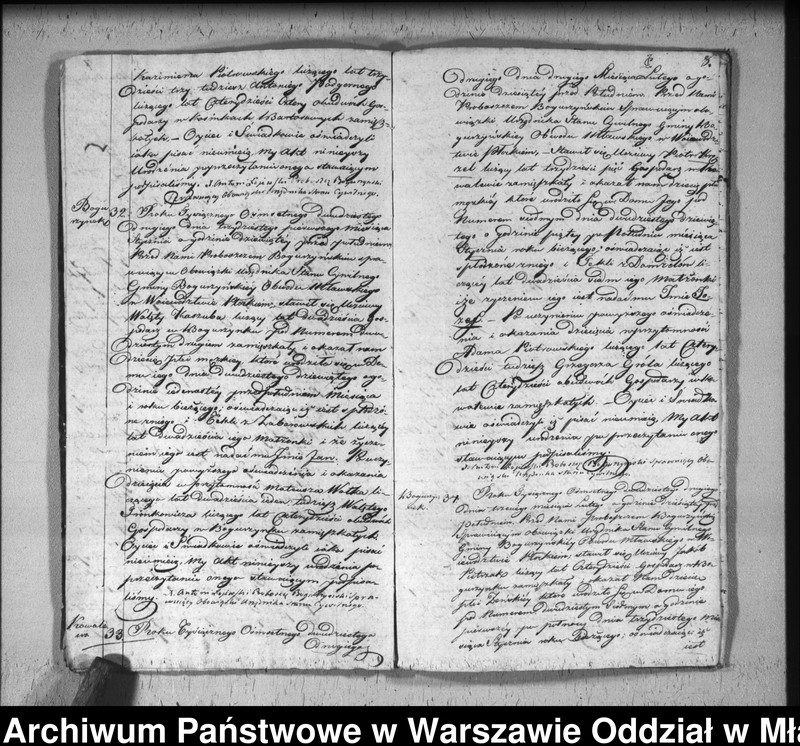 Kazimierza Piotrowskiego liczącego lat trzy
dzieści trzy, tudzież Antoniego Podgornego
liczącego lat Czterdzieści Cztery obudwuch Gos
podarzy w Kosinkach Bartosowych zamięsz
kałych. – Oyciec i Swiadkowie oświadczyli
iako pisać nieumieią. My Akt ninieyszy
Urodzenia po przeczytaniu onego stawaiącym
podpisaliśmy.
Bogu
rzynek 32. Roku Tysiącznego Ośmsetnego dwudziestego
drugiego Dnia trzydziestego pierwszego miesiąca
Stycznia o godzinie dziesiątey przed południem
Przed Nami Proboszczem Bogurzyńskim spra
wuiącym Obowiązki Urzędnika Stanu Cywilnego
Gminy Bogurzyńskiey Obwodu Mławskiego
w Wojewodztwie Płockiem, stawił się Uczciwy
Walęty Kaszuba liczący lat dwadzieścia Gos
podarz w Bogurzynku pod Numerem dwu
dziestym drugim zamięszkały i okazał nam
Dziecię płci męzkiey, które urodziło się w Do
mu iego Dnia Dwudziestego dziewiątego o go
dzinie iedenastey przed południem Miesiąca
i roku bieżącego; oświadczaiąc iż iest spłodzo
ne z niego i Tekli z Zaborowskich liczącey
lat dwadzieścia iego Małżonki i że życze
niem iego iest nadać mu Imie Jan. Po uczy
nieniu powyższego oświadczenia i okazania
dziecięcia w przytomności Mateusza Wolka li
czącego lat dwadzieścia ieden tudzież Walętego
liczącego lat Czterdzieści obudwuch
Gospodarzy w Bogurzynku zamięszkałych.
Oyciec i Swiadkowie oświadczyli iako pisać
nieumieią. My Akt ninieyszy urodzenia po
przeczytaniu onego stawaiącym podpisa
liśmy.
Kowale
wo 33 Roku Tysiącznego Ośmsetnego dwudziestego
drugiego
3.
drugiego dnia drugiego Miesiąca Lutego o go
dzinie Dziesiątey przed Południem Przed Nami
Proboszczem Bogurzyńskim Sprawuiącym obo
wiązki Urzędnika Stanu Cywilnego Gminy Bo
gurzyńskiey Obwodu Mławskiego w Wojewodz
twie Płockiem, Stawił się Uczciwy Piotr
liczący lat trzydzieści pięć Gospodarz w Ko
walewie zamięszkały i okazał nam Dziecię płci
męzkiey które urodziło się w Domu Jego pod
Numerem siodmym dnia dwudziestego dziewią
tego o godzinie piątey po Południu miesiąca
Stycznia roku bieżącego; oświadczaiąc iż iest
spłodzone z niego i Tekli z li
czącey lat dwadzieścia siedm iego Małżonki
iż życzeniem iego iest nadać mu Imie Jo
zef. – Po uczynieniu powyższego oświadcze
nia i okazania dziecięcia w przytomności
Adama Piotrowskiego liczącego lat Cztery
dzieści tudzież Grzegorza Grola liczącego
lat Czterdzieści obudwuch Gospodarzy w Ko
walewie zamięszkałych. – Oyciec i Swiadko
wie oświadczyli iż pisać nieumieią. My Akt
ninieyszy urodzenia po przeczytaniu onego
stawaiącym podpisaliśmy.
Bogurzy
nek 34. Roku Tysiącznego Ośmsetnego dwudziestego drugiego
Dnia trzeciego miesiąca Lutego o godzinie Dziesiątey przed
południem Przed Nami Proboszczem Bogurzyńskim
Sprawuiącym Obowiązki Urzędnika Stanu Cywilnego
Gminy Bogurzyńskiey Obwodu Mławskiego w Wo
iewodztwie Płockiem, stawił się Uczciwy Jakób
Pietrzak liczący lat Czterdzieści Gospodarz w Bo
gurzynku zamięszkały i okazał Nam Dziecię
płci Żeńskiey które urodziło się w Domu iego
pod Numerem Dwudziestym Siodmym o godzinie
pierwszey po połnocy Dnia trzydziestego Mie
siąca Stycznia roku Bieżącego; oświadczaiąc iż
iest
Archiwum Państwowe w Warszawie Oddział w Mła